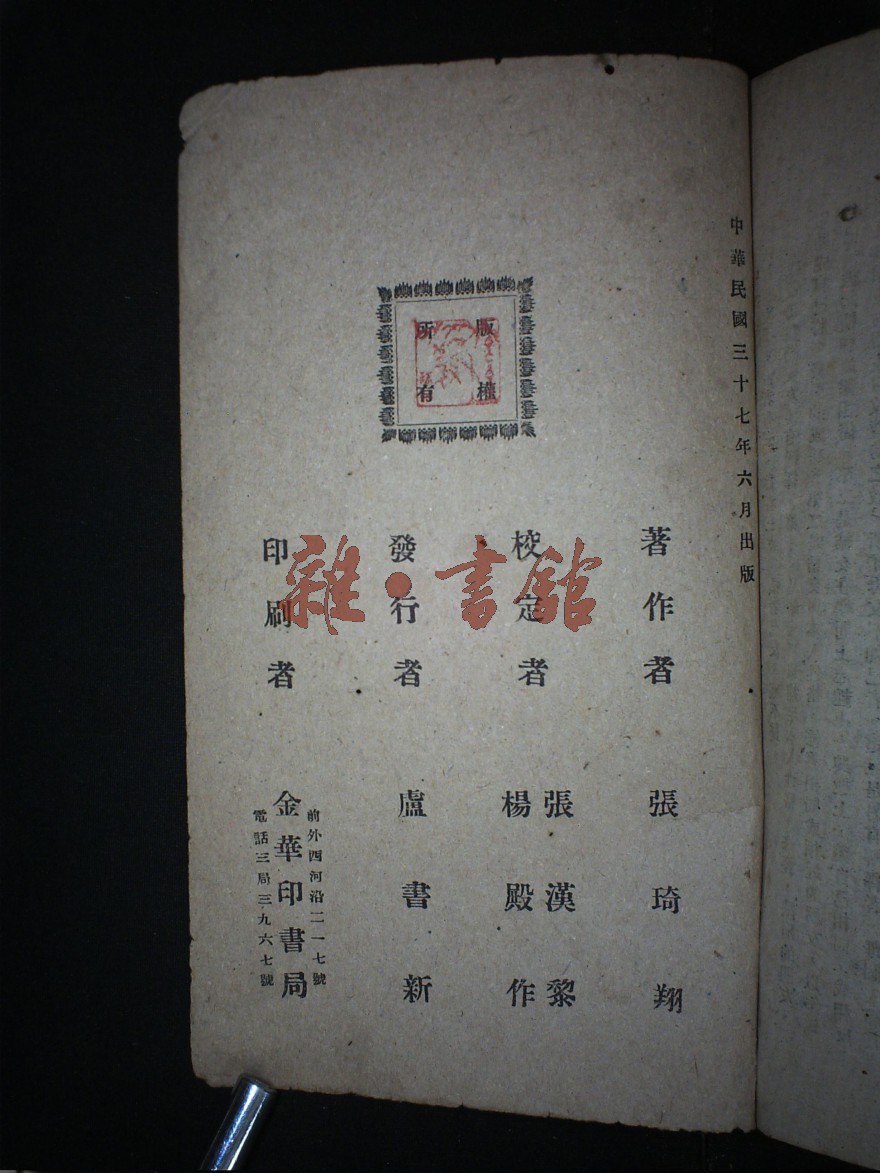 中華民國三十七年六月出版
版權
所有
著作者 張琦翔
校定者 張漢黎
楊殿作
發行者 盧書新
印刷者
前外西河沿二一七號
金華印書局
電話三局三九六七號
雜·書館